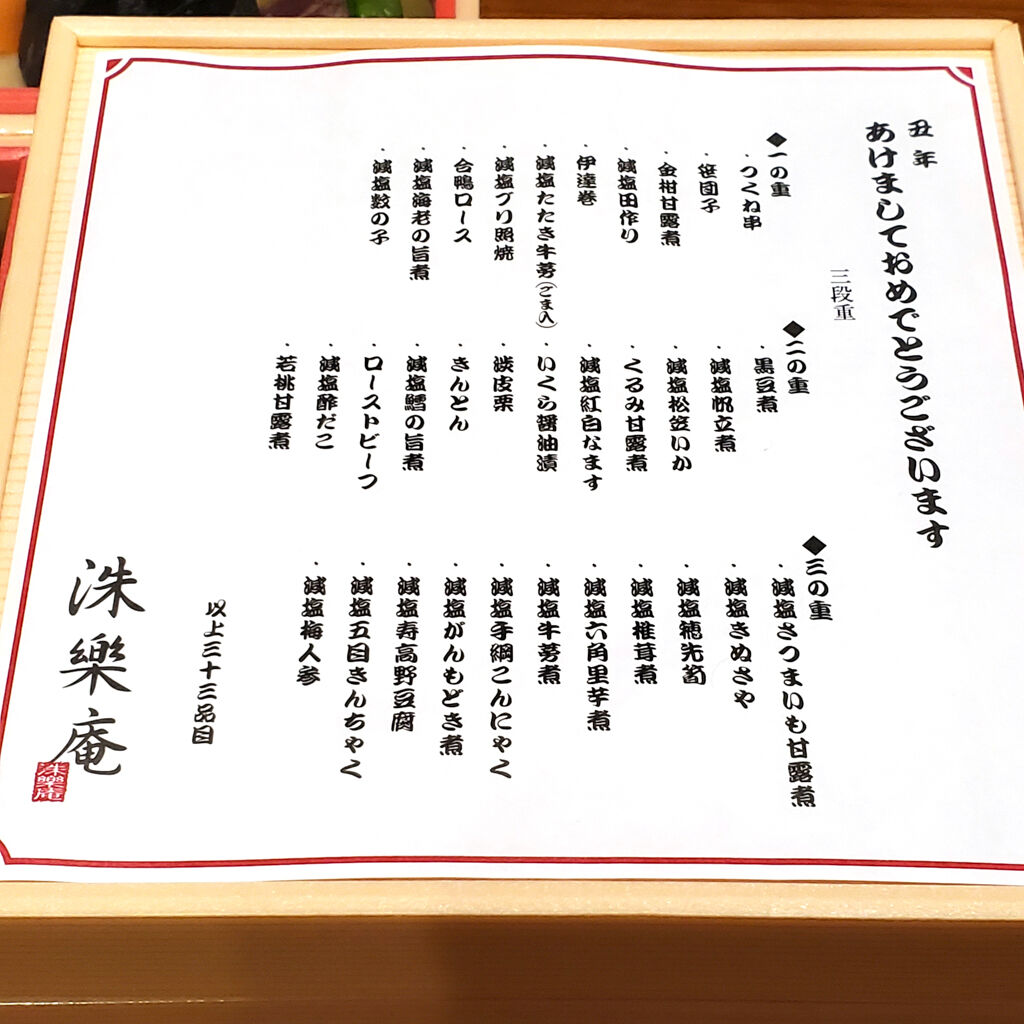 丑年
あけましておめでとうございます
三段重
◆一の重
・つくね串
・笹団子
・金柑甘露煮
・減塩田作り
・伊達巻
・減塩たたき牛蒡(ごま入)
・減塩ブリ照焼
・合鴨ロース
・減塩海老の旨煮
・減塩数の子
◆二の重
・黒豆煮
・減塩帆立煮
・減塩松笠いか
・くるみ甘露煮
・減塩紅白なます
・いくら醤油漬
・渋皮栗
・きんとん
・減塩鱈の旨煮
・ローストビーフ
・減塩酢だこ
・若桃甘露煮
◆三の重
・減塩さつまいも甘露煮
・減塩きぬさや
・減塩穂先筍
・減塩椎茸煮
・減塩六角里芋煮
・減塩牛蒡煮
・減塩手綱こんにゃく
・減塩がんもどき煮
・減塩寿高野豆腐
・減塩五目きんちゃく
・減塩梅人参
以上三十三品目
洙樂庵
洙樂庵